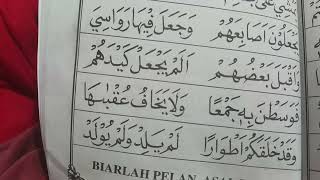 يَجْعَلُوْنَ اَصَابِعَهُمْ وَجَعَلَ فِيْهَا رَوَاسِيَ
وَاَقْبَلَ بَعْضُهُمْ اَلَمْ يَجْعَلْ كَيْدَهُمْ
فَوَسَطْنَ بِهٖ جَمْعًا وَلَا يَخَافُ عُقْبٰهَا
وَقَدْ خَلَقَكُمْ اَطْوَارًا لَمْ يَلِدْ وَلَمْ يُوْلَدْ
BIARLAH PELAN, ASAL